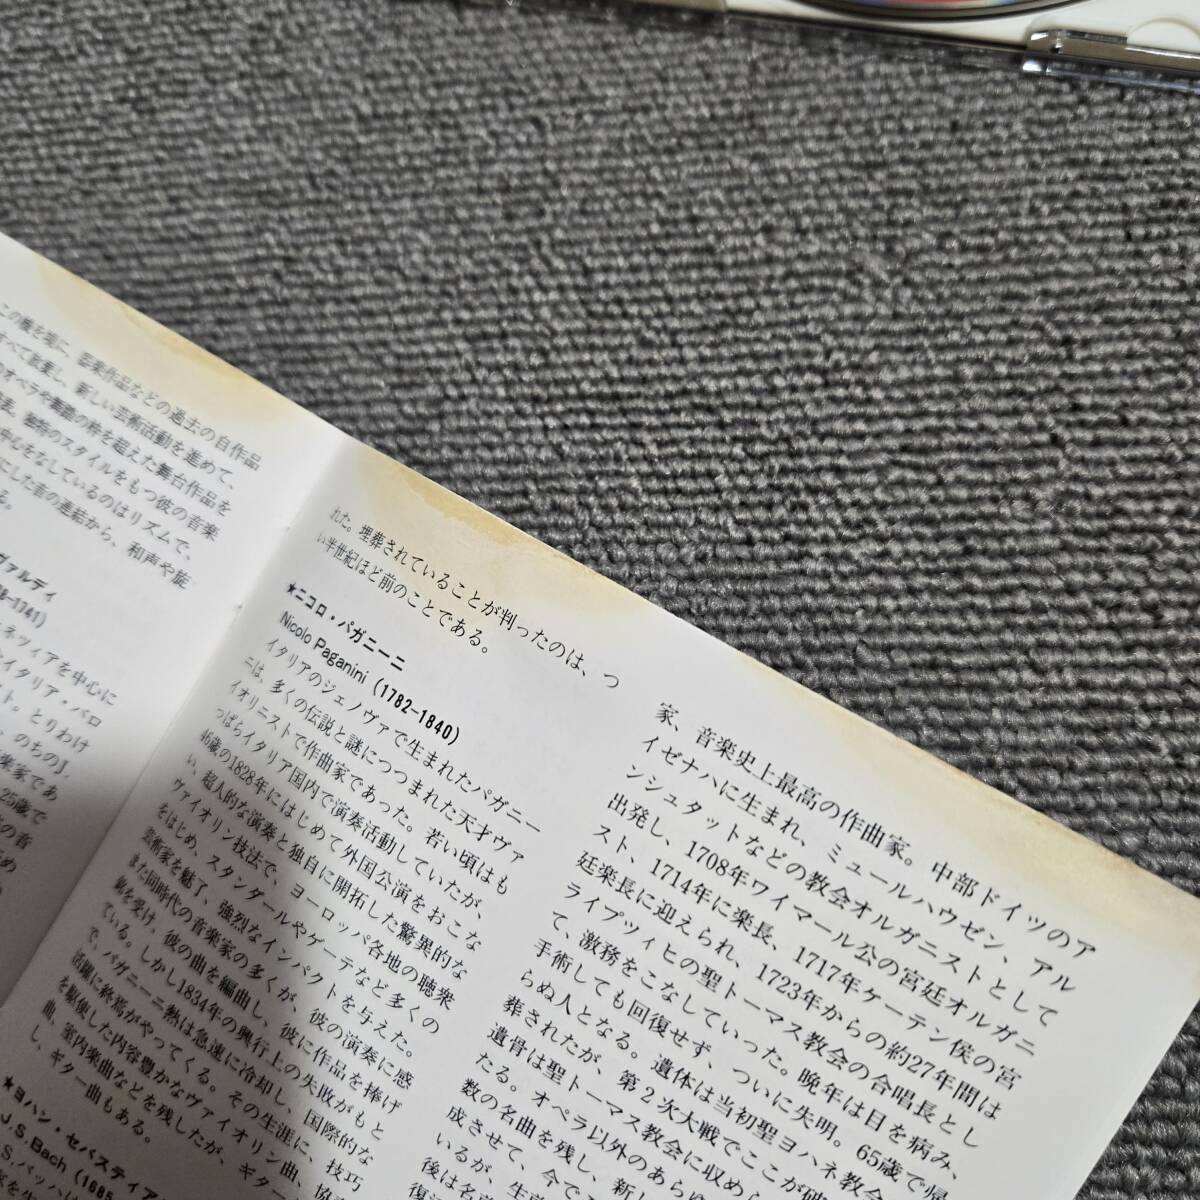 この機を境に、音楽作品などの過去の自作品
すべて放棄し、新しい芸術活動を進めて、
のオペラや舞踊の枠を超えた舞台作品を
のスタイルをもつ彼の音楽
中心をなしているのはリズムで、
にした音の連結から、和声や旋
る。
ヴァルディ
8-1741)
ネツィアを中心に
たイタリア・バロ
ト。とりわけ
、のちのJ.
楽家であ
25歳で
の音
め
れた。埋葬されていることが判ったのは、つ
い半世紀ほど前のことである。
★ニコロ・パガニーニ
Nicolo Paganini (1782-1840)
イタリアのジェノヴァで生まれたパガニー
ニは、多くの伝説と謎につつまれた天才ヴァ
イオリニストで作曲家であった。若い頃はも
っぱらイタリア国内で演奏活動していたが、
46歳の1828年にはじめて外国公演をおこな
い、超人的な演奏と独自に開拓した驚異的な
ヴァイオリン技法で、ヨーロッパ各地の聴衆
をはじめ、スタンダールやゲーテなど多くの
芸術家を魅了、強烈なインパクトを与えた。
また同時代の音楽家の多くが、彼の演奏に感
銘を受け、彼の曲を編曲し、彼に作品を捧げ
ている。しかし1834年の興行上の失敗がもと
で、パガニーニ熱は急速に冷却し、国際的な
活躍に終焉がやってくる。その生涯に、技巧
を駆使した内容豊かなヴァイオリン曲、協奏
曲、室内楽曲などを残したが、ギター
し、ギター曲もある。
★ヨハン・セバスティア
J.S.Bach (1685
S.バッハは
家、音楽史上最高の作曲家。中部ドイツのア
イゼナハに生まれ、ミュールハウゼン、アル
ンシュタットなどの教会オルガニストとして
出発し、1708年ワイマール公の宮廷オルガニ
スト、1714年に楽長、1717年ケーテン侯の宮
廷楽長に迎えられ、1723年からの約27年間は
ライプツィヒの聖トーマス教会の合唱長とし
て、激務をこなしていった。晩年は目を病み、
手術しても回復せず、ついに失明。65歳で帰
らぬ人となる。遺体は当初聖ヨハネ教会
葬されたが、第2次大戦でここが破
遺骨は聖トーマス教会に収めら
たる。オペラ以外のあらゆ
数の名曲を残し、新し
成させて、今でこ
いるが、生前
後は名前
復活